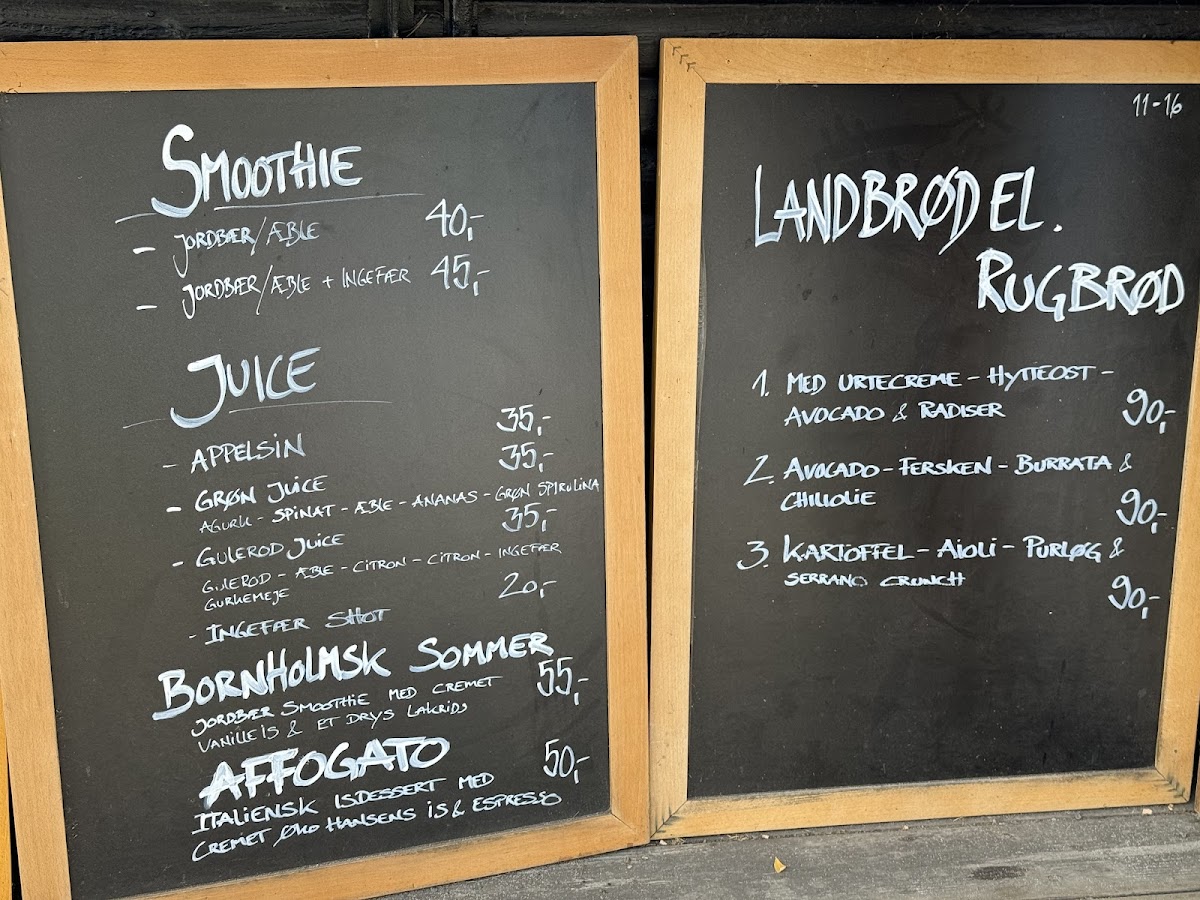 SMOOTHIE
- JORDBÆR/ÆBLE 40,-
- JORDBÆR/ÆBLE + INGEFÆR 45,-
JUICE
- APPELSIN 35,-
- GRØN JUICE 35,-
AGURK - SPINAT - ÆBLE - ANANAS - GRØN SPIRULINA
- GULEROD JUICE 35,-
GULEROD - ÆBLE - CITRON - CITRON - INGEFÆR
GURKEMEJE
- INGEFÆR SHOT 20,-
BORNHOLMSK SOMMER
JORDBÆR SMOOTHIE MED CREMET 55,-
VANILLE IS & ET DRYS LAKRIDS
AFFOGATO 50,-
ITALIENSK ISDESSERT MED
CREMET ØKO HANSENS IS & ESPRESSO
11-16
LANDBRØD EL.
RUGBRØD
1. MED URTECREME - HYTTEOST -
AVOCADO & RADISER 90,-
2. AVOCADO - FERSKEN - BURRATA &
CHILIOLIE 90,-
3. KARTOFFEL - AIOLI - PURLØG &
SERRANO CRUNCH 90,-